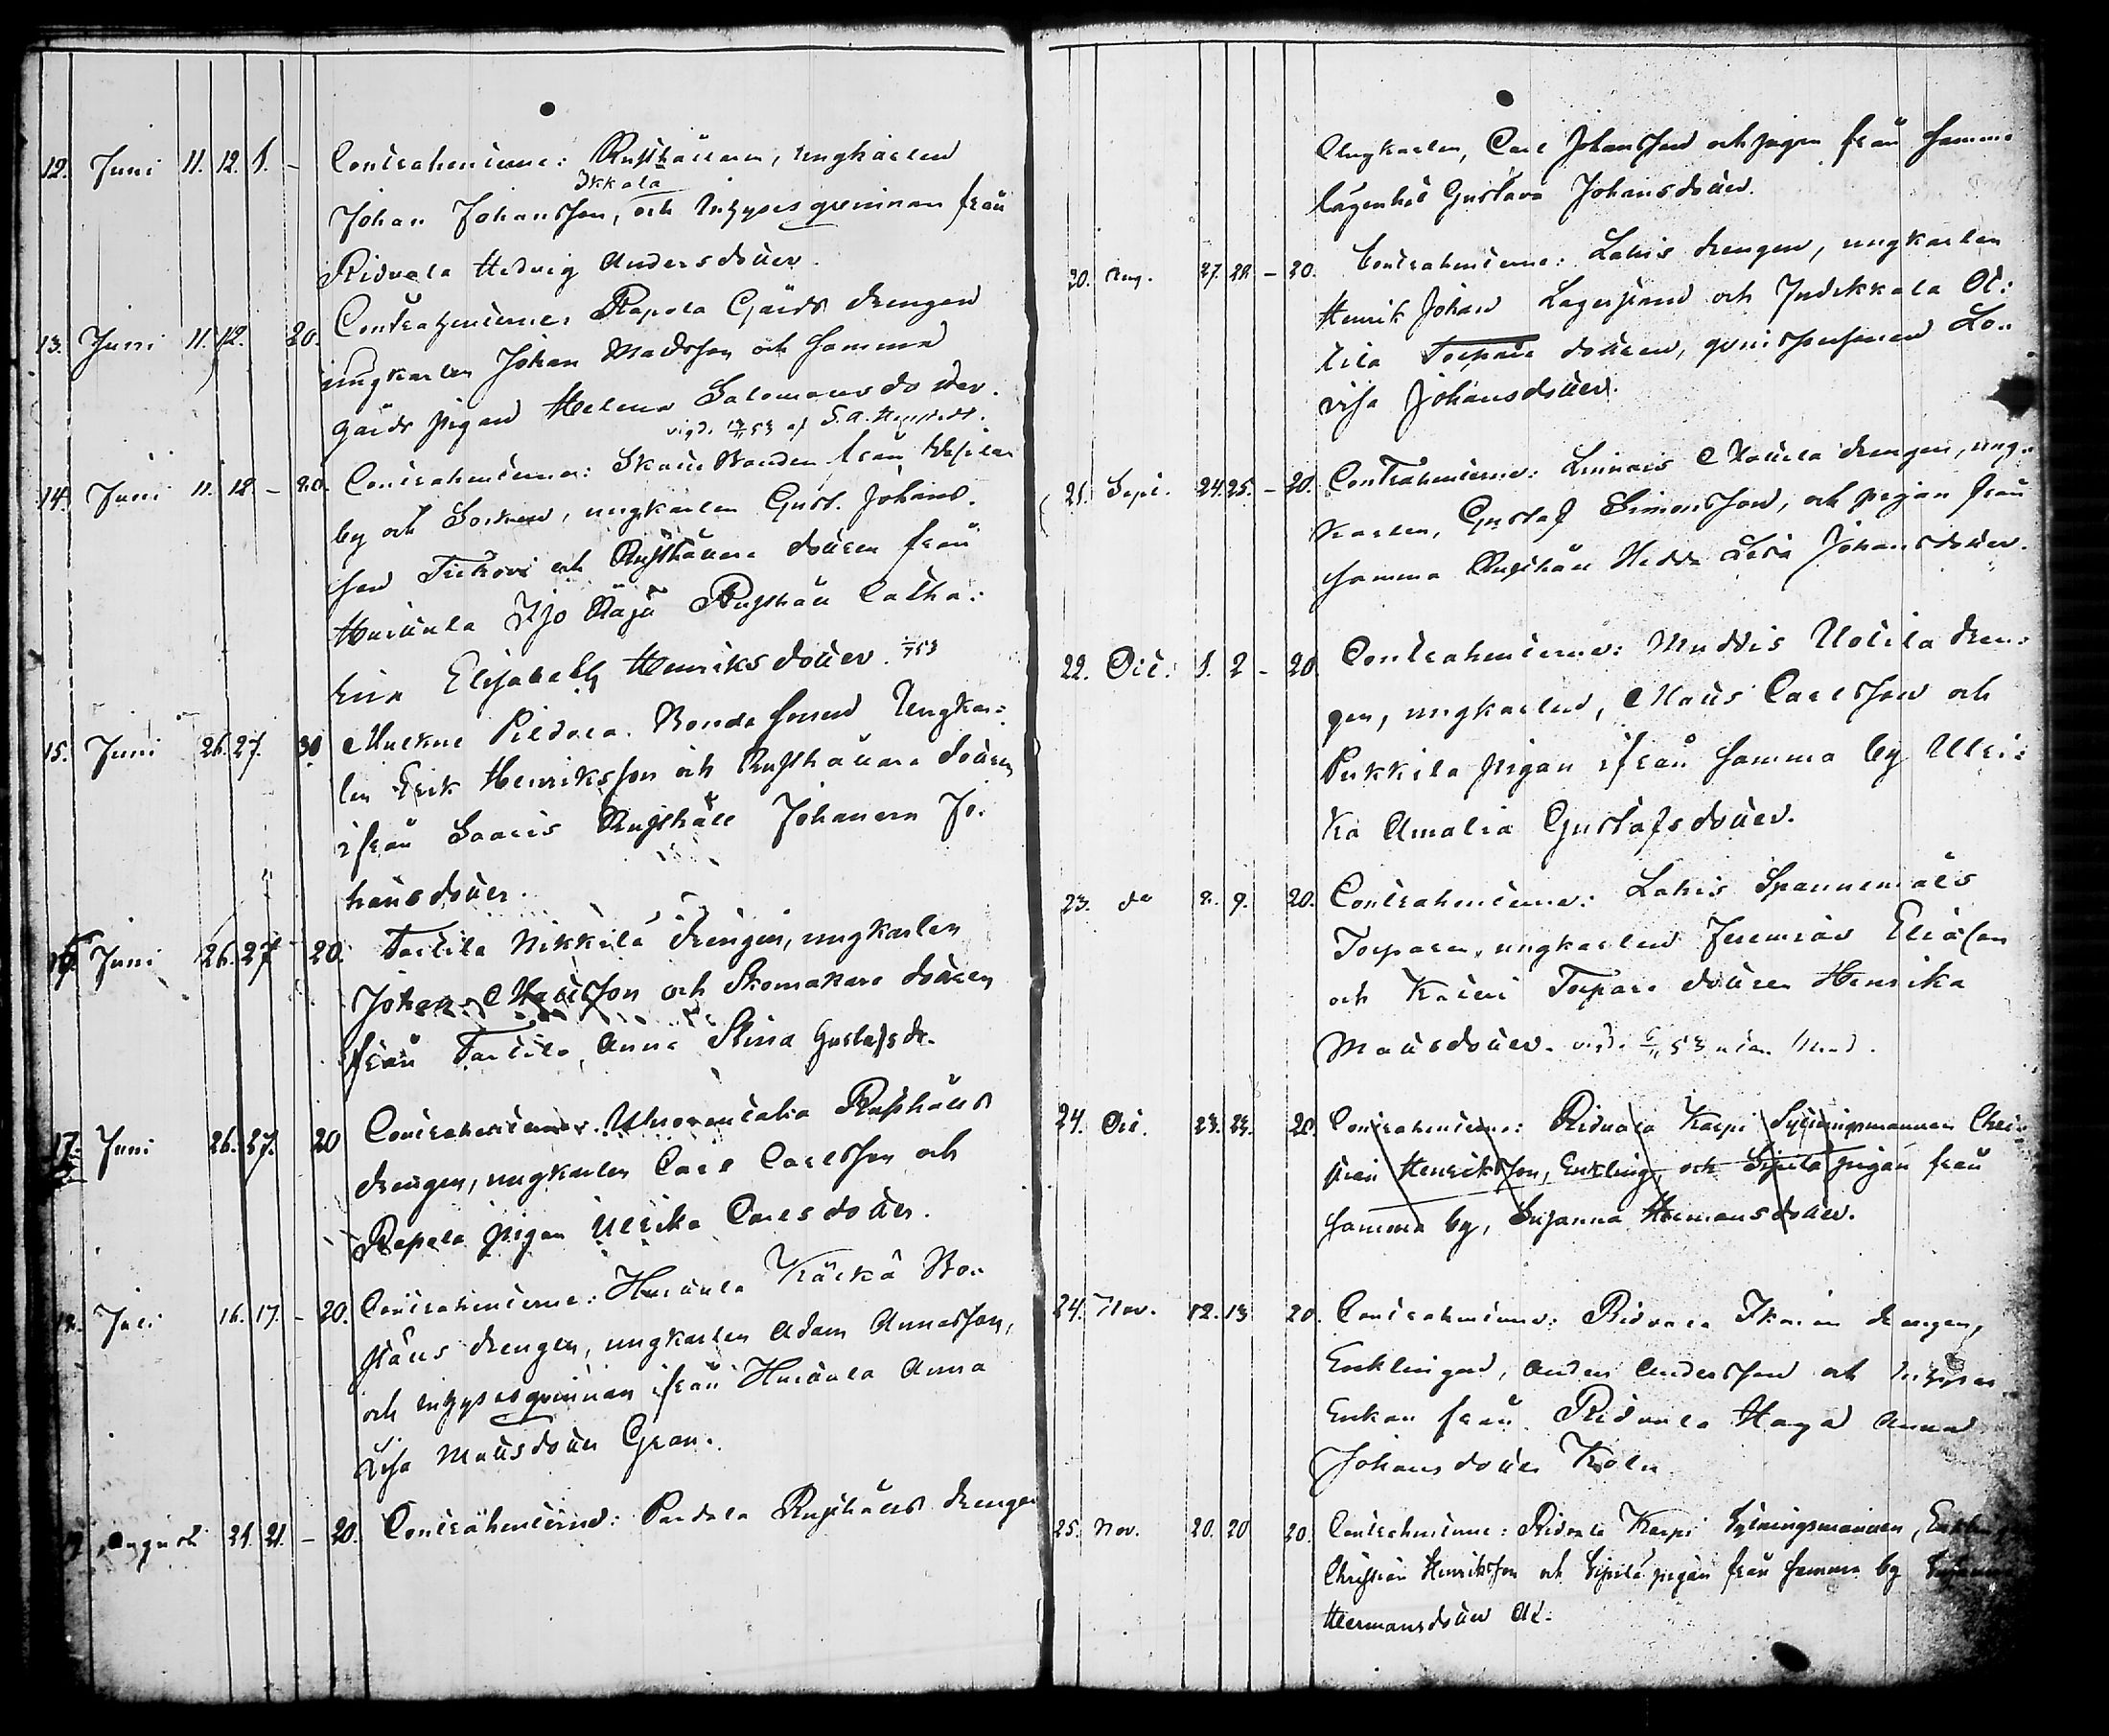 12. Juni 11. 12. 1. - Contrahenterne: Rusthållaren, ungkarlen
Ikkala
Johan Johansson, och Inhyses qvinnan från
Ridvala Hedvig Andersdotter.
13. Juni 11. 12. 20. Contrahenterne: Rapola Gårds drengen
ungkarlen Johan Madsson och samma
gårds pigan Helena Salomonsdotter.
vigd. 53 af S. A.
14. Juni 11. 12. - 20. Contrahenterne: Skatte Bonden från
by och Socken, ungkarlen Gust. Johans-
son och Rusthållare dottren från
Huittula Yjo Rusthåll Catha:
rina Elisabeth Henriksdotter. 53
15. Juni 26. 27. 30. Bonde sonen Ungkar:
len Erik Henriksson och Rusthållare dottren
ifrån Saaris Rusthåll Johanna Jo:
hansdotter.
16. Juni 26. 27 20. Tarttila Nikkilä drengen, ungkarlen
Johan Mattsson och Skomakare dottren
från Tarttila, Anna Stina Gustafsdr.
17. Juni 26. 27. 20 Contrahenterne. Uhoventalia Rusthålls
drengen, ungkarlen Carl Carlsson och
Rapola pigan Ulrika Carlsdotter.
18. Juli 16. 17. - 20. Contrahenterne: Huittula Bo-
ställs drengen, ungkarlen Adam Annasson,
och inhyses qvinnan ifrån Huittula Anna
Lisa Mattsdotter Gran.
19 Augusti 21. 21. - 20. Contrahenterne: Pardala Rusthålls drengen
Ungkarlen, Carl Johansson och pigan från samma
lägenhet Gustava Johansdotter.
20. Aug. 27. 28. - 20. Contrahenterne: Lahis drengen, ungkarlen
Henrik Johan Lagerstrand och Judikkala Ol:
lila Torpare dottren, qvinspersonen Lo-
visa Johansdotter.
21. Sept. 24. 25. - 20. Contrahenterne: Linnais Mattila drengen, ung-
karlen, Gustaf Simonsson, och pigan från
samma Rusthåll Hedda Lisa Johansdotter.
22. Oct. 1. 2 - 20 Contrahenterne: Muddis Uotila dren:
gen, ungkarlen, Matts Carlsson och
Pukkila pigan ifrån samma by Ulri:
ka Amalia Gustafsdotter.
23. do 8. 9. 20. Contrahenterne: Lahis Spannemåls
Torparen, ungkarlen Jeremias Eliasson
och Torpare dottren Henrika
Mattsdotter. vigde 53 utan
24. Oct. 23. 23. 20. Contrahenterne: Ridvala Karpi Sytningsmannen Chri-
stian Henriksson, Enkling, och Sipilä pigan från
samma by, Susanna Hermansdotter.
24. Nov. 12. 13 20. Contrahenterne: Ridvala drengen,
Enklingen, Anders Andersson och Inhyses
Enkan från Ridvala Haga Anna
Johansdotter
25. Nov. 20. 20 20. Contrahenterne: Ridvala Karpi Sytningsmannen,
Christian Henriksson och Sipilä pigan från samma by
Hermansdotter